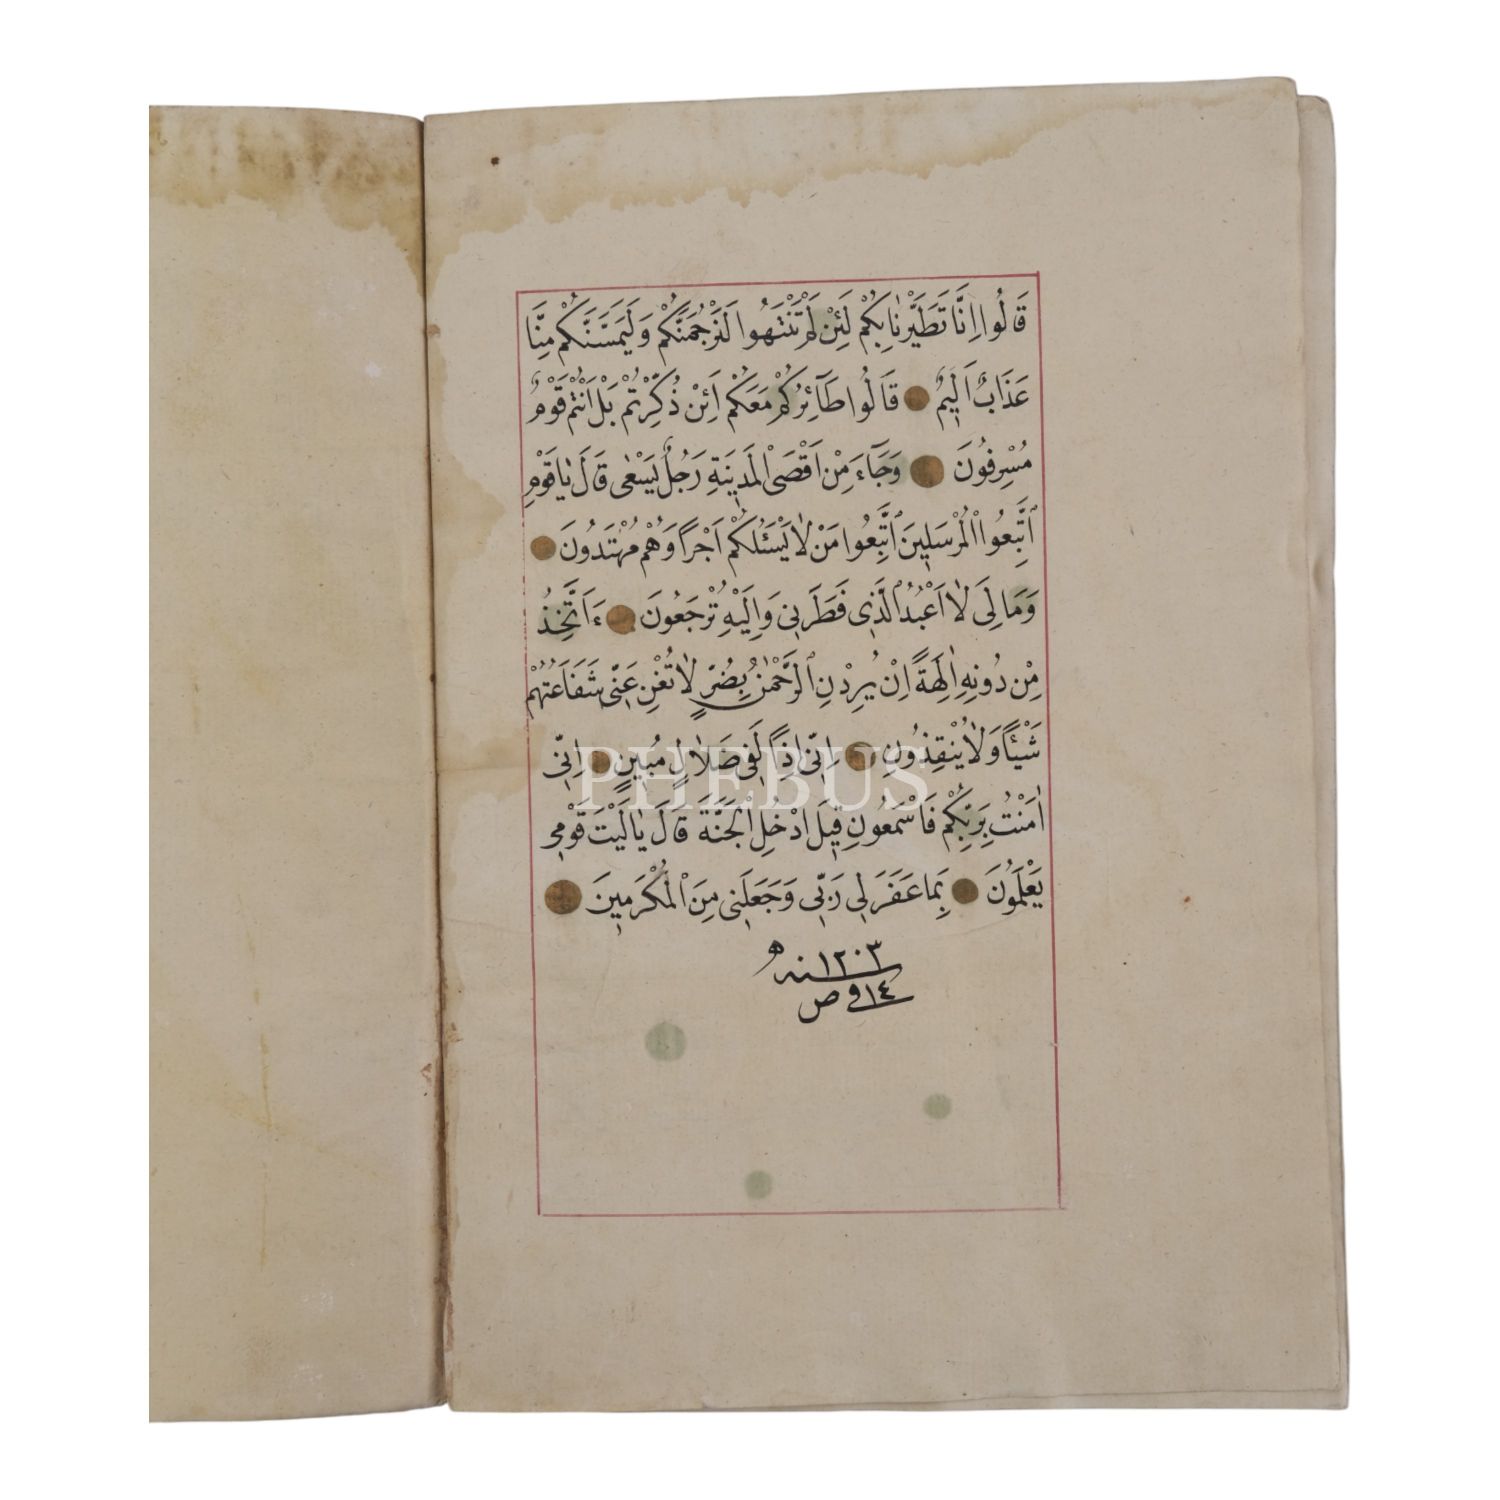 قَالُوا اِنَّا تَطَيَّرْنَا بِكُمْ لَئِنْ لَمْ تَنْتَهُوا لَنَرْجُمَنَّكُمْ وَلَيَمَسَّنَّكُمْ مِنَّا
عَذَابٌ اَلِيمٌ قَالُوا طَآئِرُكُمْ مَعَكُمْ اَئِنْ ذُكِّرْتُمْ بَلْ اَنْتُمْ قَوْمٌ
مُسْرِفُونَ وَجَآءَ مِنْ اَقْصَى الْمَدِينَةِ رَجُلٌ يَسْعٰى قَالَ يَا قَوْمِ
اتَّبِعُوا الْمُرْسَلِينَ اتَّبِعُوا مَنْ لَا يَسْئَلُكُمْ اَجْرًا وَهُمْ مُهْتَدُونَ
وَمَا لِىَ لَا اَعْبُدُ الَّذِى فَطَرَنِى وَاِلَيْهِ تُرْجَعُونَ ءَاَتَّخِذُ
مِنْ دُونِهِ اٰلِهَةً اِنْ يُرِدْنِ الرَّحْمٰنُ بِضُرٍّ لَا تُغْنِ عَنِّى شَفَاعَتُهُمْ
شَيْئًا وَلَا يُنْقِذُونِ اِنِّى اِذًا لَفِى ضَلَالٍ مُبِينٍ اِنِّى
اٰمَنْتُ بِرَبِّكُمْ فَاسْمَعُونِ قِيلَ ادْخُلِ الْجَنَّةَ قَالَ يَا لَيْتَ قَوْمِى
يَعْلَمُونَ بِمَا غَفَرَ لِى رَبِّى وَجَعَلَنِى مِنَ الْمُكْرَمِينَ
سنه ١٢٠٣ هـ
١٤ في ص
PHEBUS